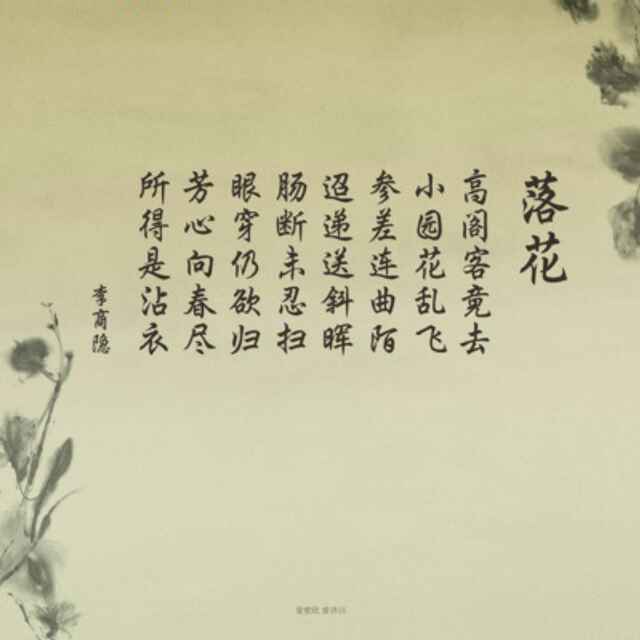 落花
高阁客竟去
小园花乱飞
参差连曲陌
迢递送斜晖
肠断未忍扫
眼穿仍欲归
芳心向春尽
所得是沾衣
李商隐